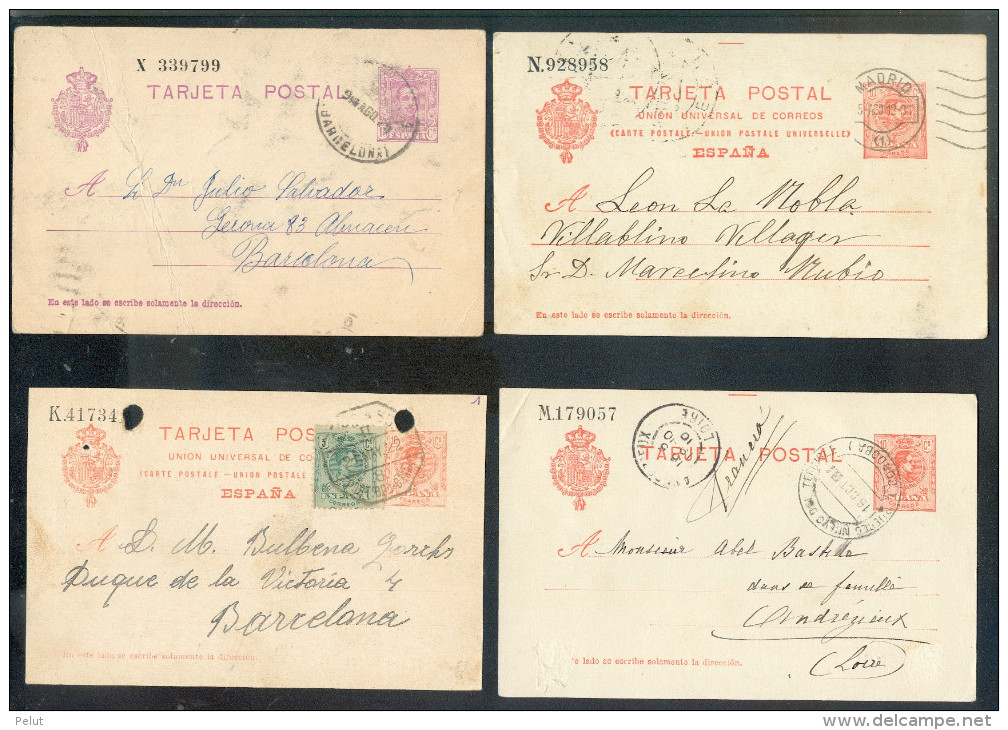 X 339799
TARJETA POSTAL
BARCELONA
A S. Dn Julio Salvador
Gerona 83 Almacen
Barcelona
En este lado se escribe solamente la dirección.
N.928958
TARJETA POSTAL
UNIÓN UNIVERSAL DE CORREOS
(CARTE POSTALE-UNION POSTALE UNIVERSELLE)
ESPAÑA
MADRID
(1)
A Leon La Robla
Villablino Villager
Sr. D. Marcelino Rubio
En este lado se escribe solamente la dirección.
K.41734
1
TARJETA POS
UNIÓN UNIVERSAL DE CO
(CARTE POSTALE-UNION POSTALE
ESPAÑA
A D. M. Bulbena
Duque de la Victoria 4
Barcelona
En este lado se escribe solamente la dirección.
M.179057
TARJETA POSTAL
LOIRE
A Monsieur Abel Bastide
dans sa famille
Andrézieux
(Loire)
te lado se escribe solamente la dirección.
Pelut
www.delcampe.net